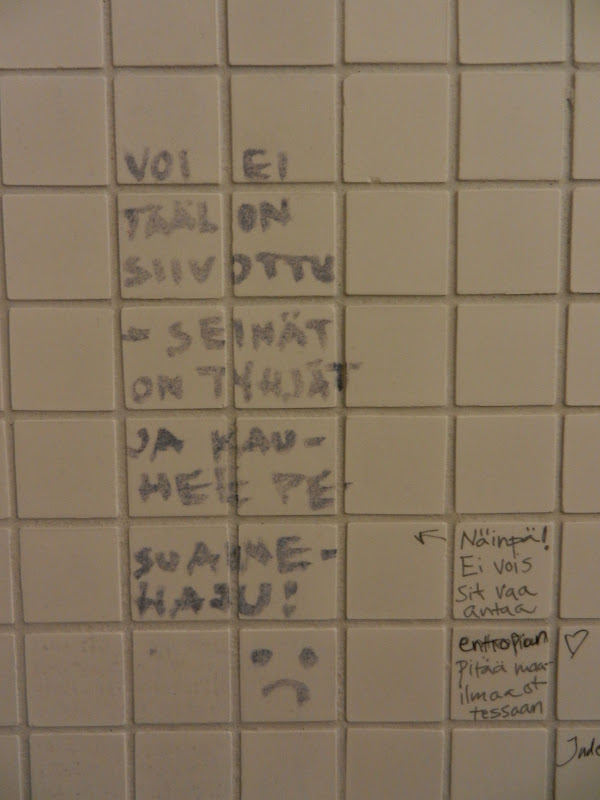 VOI EI
TÄÄL ON
SIIVOTTU
- SEINÄT
ON TYHJÄT
JA KAU-
HEE PE-
SUAINE-
HAJU!
Näinpä!
Ei vois
sit vaa
antaa
entropian
pitää maa-
ilmaa ot
tessaan